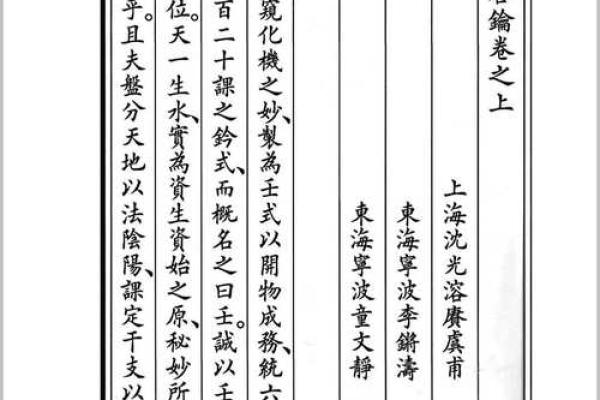 鑰卷之上
上海沈光溶賡虞甫
東海寧波李鏘濤
東海寧波童文靜
窺化機之妙、製為壬式以開物成務、統六
百二十課之鈐式、而概名之曰壬。誠以壬
位。天一生水、實為資生資始之原、秘妙所
乎。且夫盤分天地以法陰陽、課定干支以